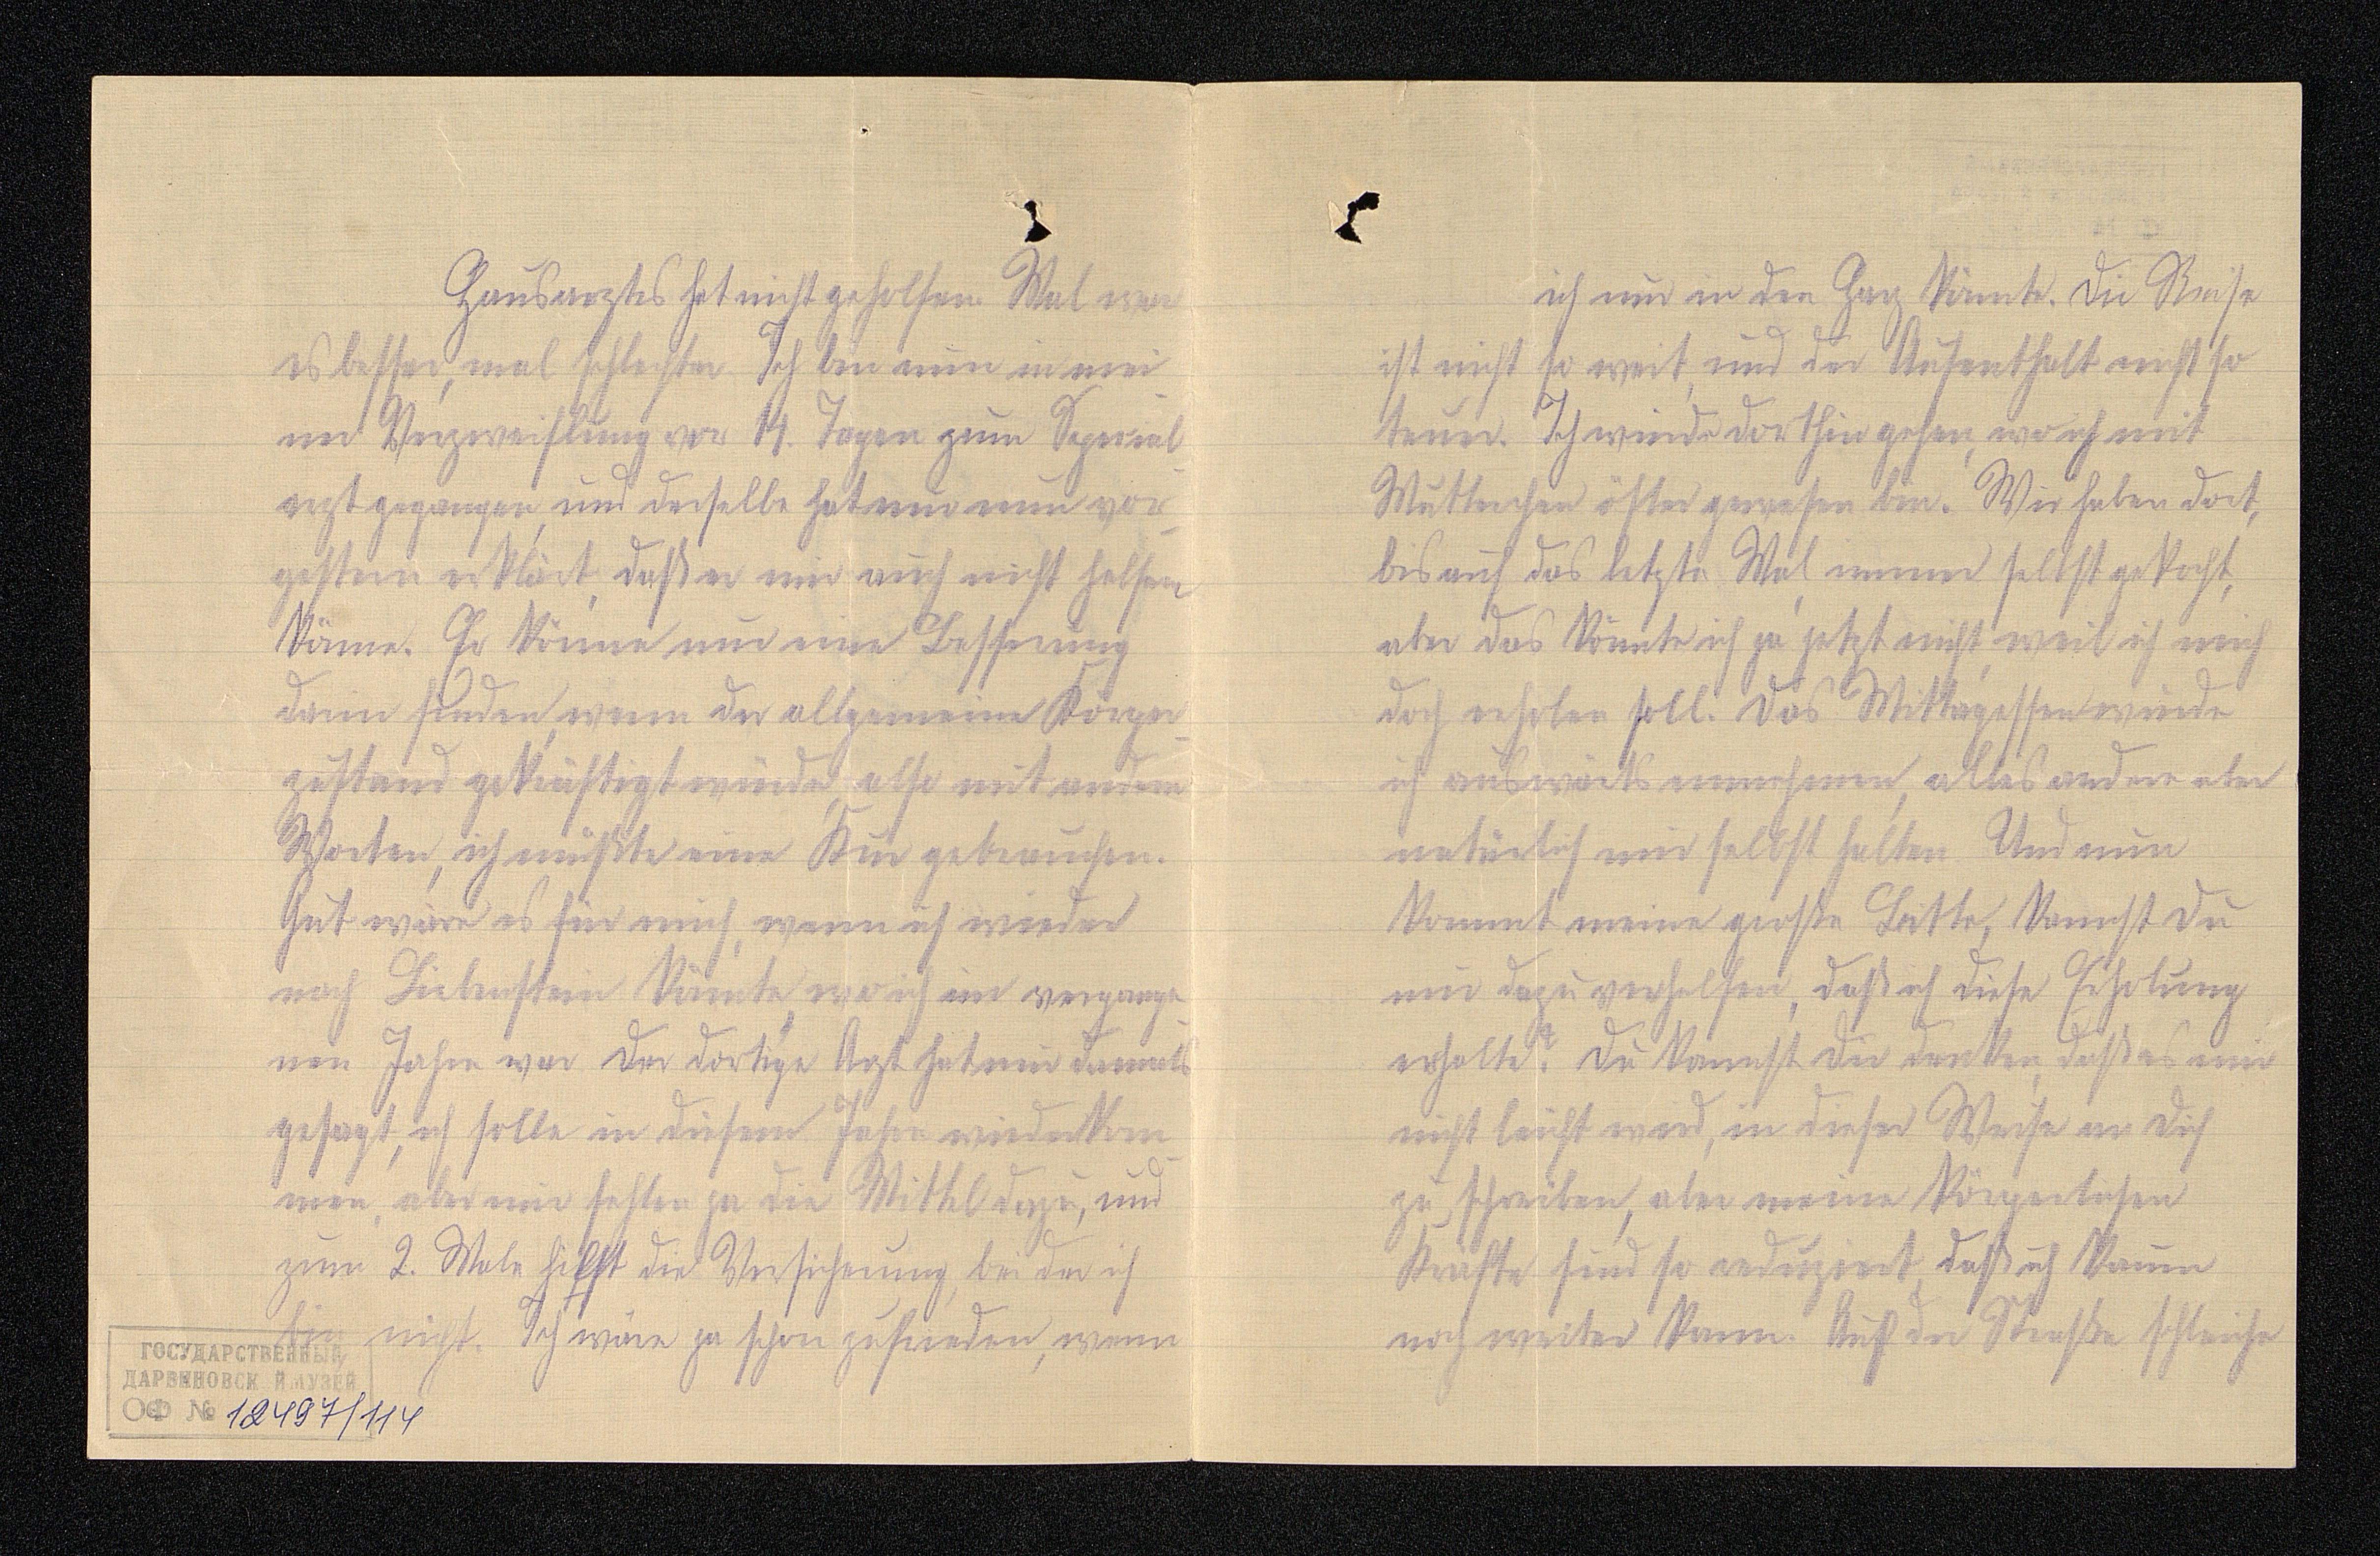 Hausarztes hat nicht geholfen. Mal war
es besser, mal schlechter. Ich bin nun in mei
ner Verzweiflung vor 14. Tagen zum Spezial
arzt gegangen, und derselbe hat mir nun vor-
gestern erklärt, daß er mir auch nicht helfen
könne. Er könne nur eine Besserung
darin finden, wenn der allgemeine Körper-
zustand gekräftigt würde, also mit andern
Worten, ich müßte eine Kur gebrauchen.
Gut wäre es für mich, wenn ich wieder
nach Liebenstein könnte, wo ich im vergange-
nen Jahre war. Der dortige Arzt hat mir damals
gesagt, ich solle in diesem Jahre wiederkom
men, aber mir fehlen ja die Mittel dazu, und
zum 2. Male hilft die Versicherung, bei der ich
bin, nicht. Ich wäre ja schon zufrieden, wenn
ГОСУДАРСТВЕННЫЙ
ДАРВИНОВСКИЙ МУЗЕЙ
ОФ № 12497/114
ich nur in den Harz könnte. Die Reise
ist nicht so weit, und der Aufenthalt nicht so
teuer. Ich würde dorthin gehen, wo ich mit
Mutterchen öfter gewesen bin. Wir haben dort,
bis auf das letzte Mal, immer selbst gekocht,
aber das könnte ich ja jetzt nicht, weil ich mich
doch erholen soll. Das Mittagessen würde
ich auswärts einnehmen, alles andere aber
natürlich mir selbst halten. Und nun
kommt meine große Bitte, kannst Du
mir dazu verhelfen, daß ich diese Erholung
erhalte? Du kannst Dir denken, daß es mir
nicht leicht wird, in dieser Weise an Dich
zu schreiben, aber meine körperlichen
Kräfte sind so reduziert, daß ich kaum
noch weiter kann. Auf der Straße schleiche